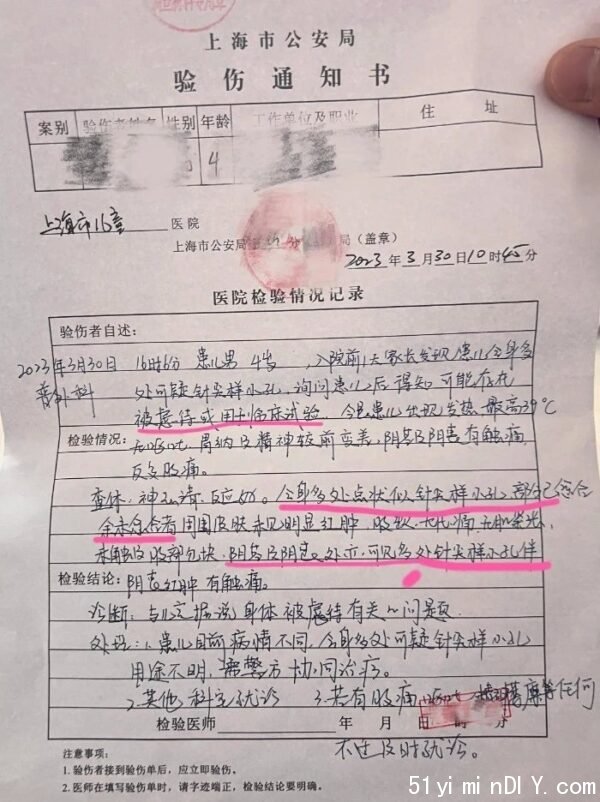 上海市公安局
验伤通知书
案别 验伤者姓名 性别 年龄 工作单位及职业 住 址
4
上海市儿童 医院
上海市公安局 分局(盖章)
2023年3月30日10时45分
医院检验情况记录
验伤者自述:
2023年3月30日 16时6分 患儿男 4岁,入院前1天家长发现患儿全身多
普外科 处可疑针尖样小孔,询问患儿后得知可能存在
被虐待或用制临床试验。今患儿出现发热 最高39℃
检验情况: 无呕吐,胃纳及精神较前变差,阴茎及阴囊有触痛,
反复腹痛。
查体:神志清,反应好。全身多处点状似针尖样小孔 部分已愈合
余未愈合者周围皮肤未见明显红肿 腹软 无压痛
未触及腹部包块,阴茎及阴囊处亦可见多处针尖样小孔伴
检验结论: 阴囊红肿 有触痛。
诊断:与儿童据说身体被虐待有关的问题
处理:1.患儿目前病情不同,全身多处可疑针尖样小孔
用途不明,需警方协同治疗。
2.其他科室就诊 3.若有腹痛 等任何
检验医师 年 月 日
不适及时就诊。
注意事项:
1.验伤者接到验伤单后,应立即验伤。
2.医师在填写验伤单时,请字迹端正,检验结论要明确。
51yiminDIY.com